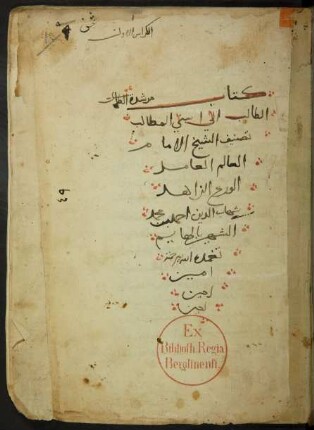 الكراس الاول
كتاب مرشدة
الطالب الى اسنى المطالب
تصنيف الشيخ الامام
العالم العامل
الورع الزاهد
شهاب الدين احمد بن محمد
الشهير بالهايم
تغمده الله برحمته
امين
امين
امين
٤٩
Ex
Biblioth. Regia
Berolinenſi.